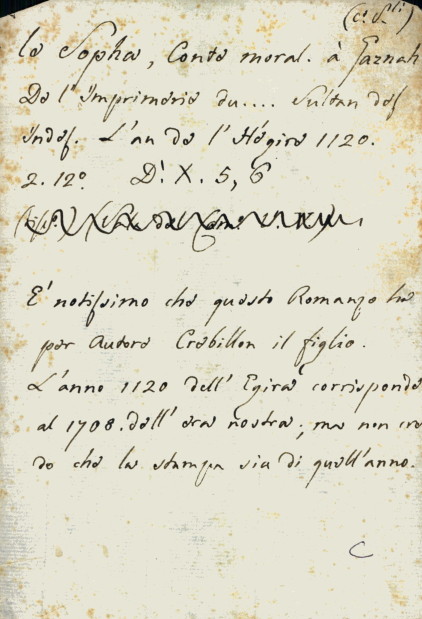 (c. S.ti)
le Sopha, Conte moral. à Gaznah
De l'Imprimerie du.... Sultan des
Indes. L'an de l'Hégire 1120.
2. 12.o D.! X. 5, 6
E' notissimo che questo Romanzo ha
per Autore Crebillon il figlio.
L'anno 1120 dell' Egira corrisponde
al 1708. dell' era nostra; ma non cre
do che la stampa sia di quell'anno.
C